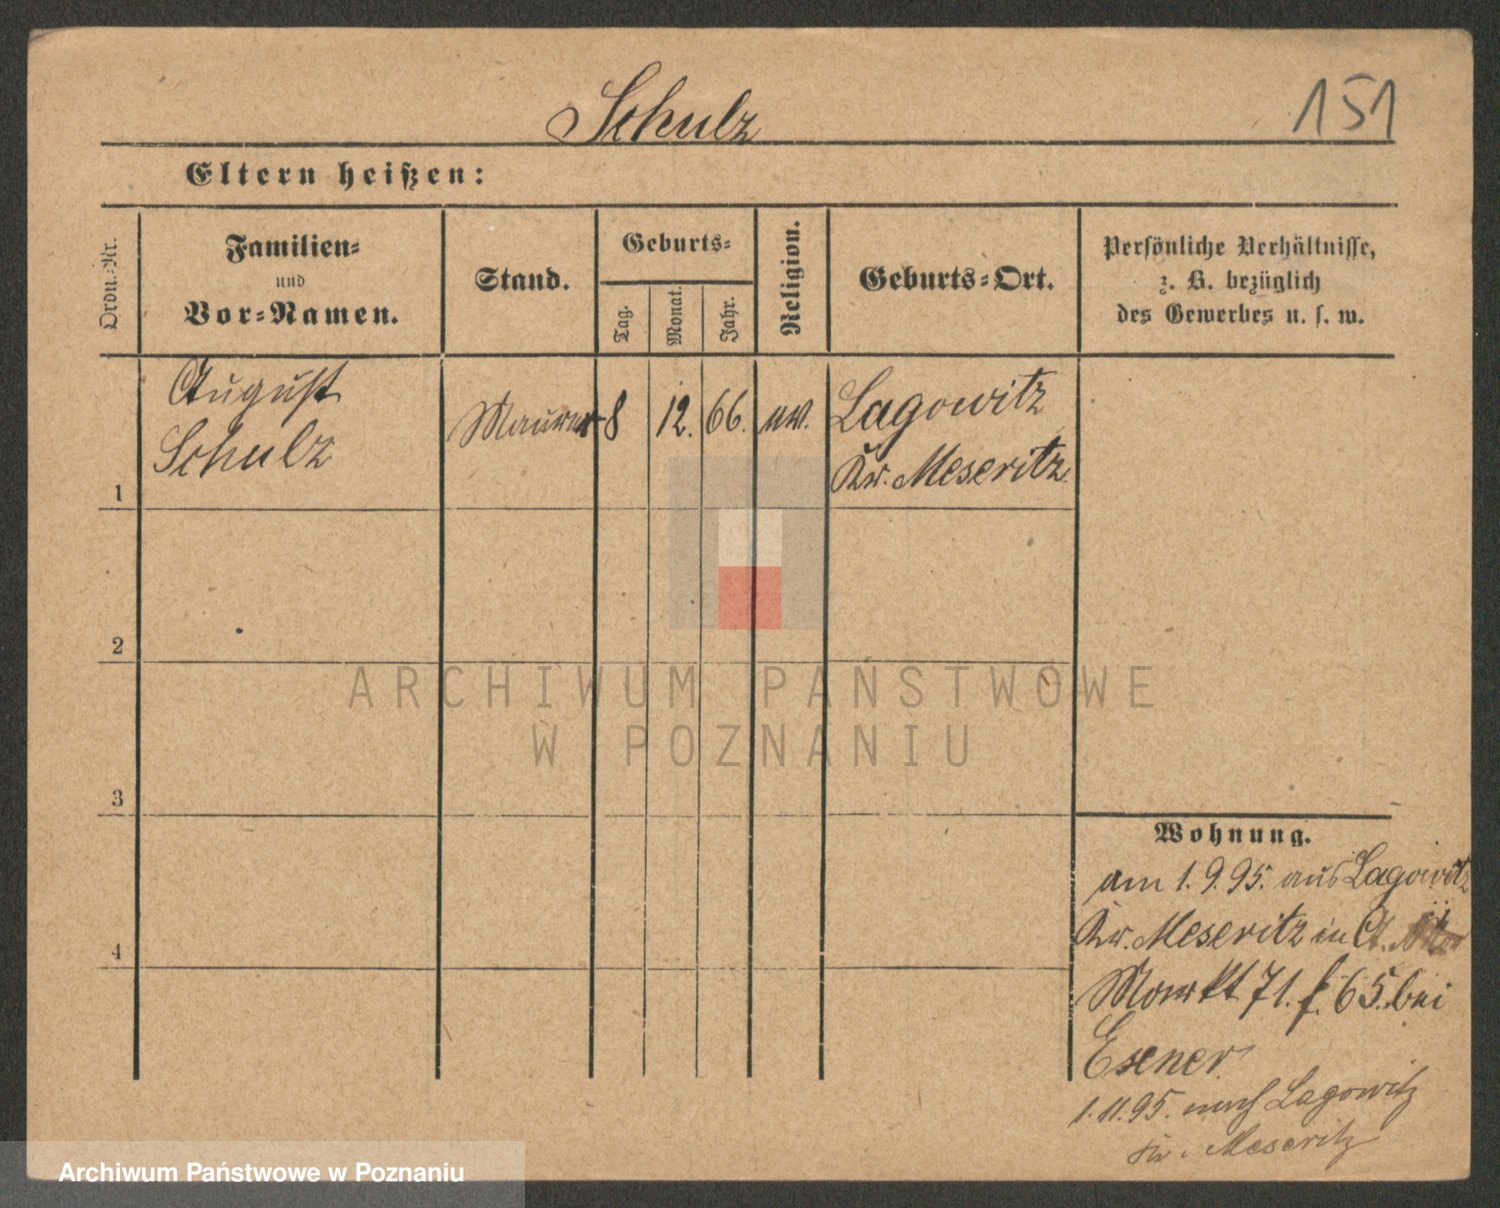 Schulz
151
Eltern heißen:
Ordn.-Nr.
Familien-
und
Vor-Namen.
Stand.
Geburts-
Tag.
Monat.
Jahr.
Religion.
Geburts-Ort.
Persönliche Verhältnisse,
z. B. bezüglich
des Gewerbes u. s. w.
August
Schulz
Maurer
8
12.
66.
ev.
Lagowitz
Kr. Meseritz
1
2
3
4
ARCHIWUM PAŃSTWOWE
W POZNANIU
Wohnung.
am 1.9.95. aus Lagowitz
Kr. Meseritz in
Markt 71. f. 65. bei
1.11.95. nach Lagowitz
Kr. Meseritz
Archiwum Państwowe w Poznaniu